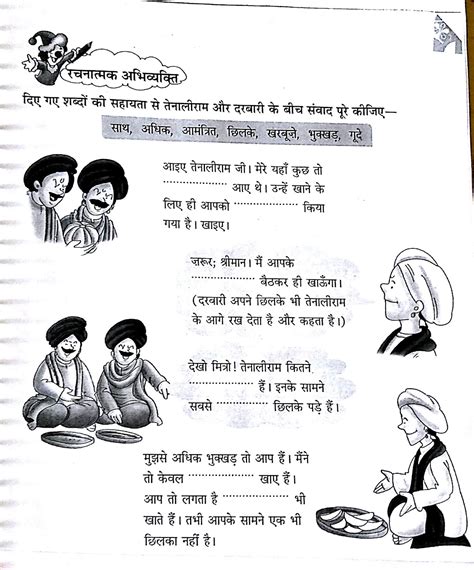 रचनात्मक अभिव्यक्ति
दिए गए शब्दों की सहायता से तेनालीराम और दरबारी के बीच संवाद पूरे कीजिए—
साथ, अधिक, आमंत्रित, छिलके, खरबूजे, भुक्खड़, गूदे
आइए तेनालीराम जी। मेरे यहाँ कुछ तो
.................. आए थे। उन्हें खाने के
लिए ही आपको .................. किया
गया है। खाइए।
ज़रूर; श्रीमान। मैं आपके
.................. बैठकर ही खाऊँगा।
(दरबारी अपने छिलके भी तेनालीराम
के आगे रख देता है और कहता है।)
देखो मित्रो! तेनालीराम कितने
.................. हैं। इनके सामने
सबसे .................. छिलके पड़े हैं।
मुझसे अधिक भुक्खड़ तो आप हैं। मैंने
तो केवल .................. खाए हैं।
आप तो लगता है .................. भी
खाते हैं। तभी आपके सामने एक भी
छिलका नहीं है।